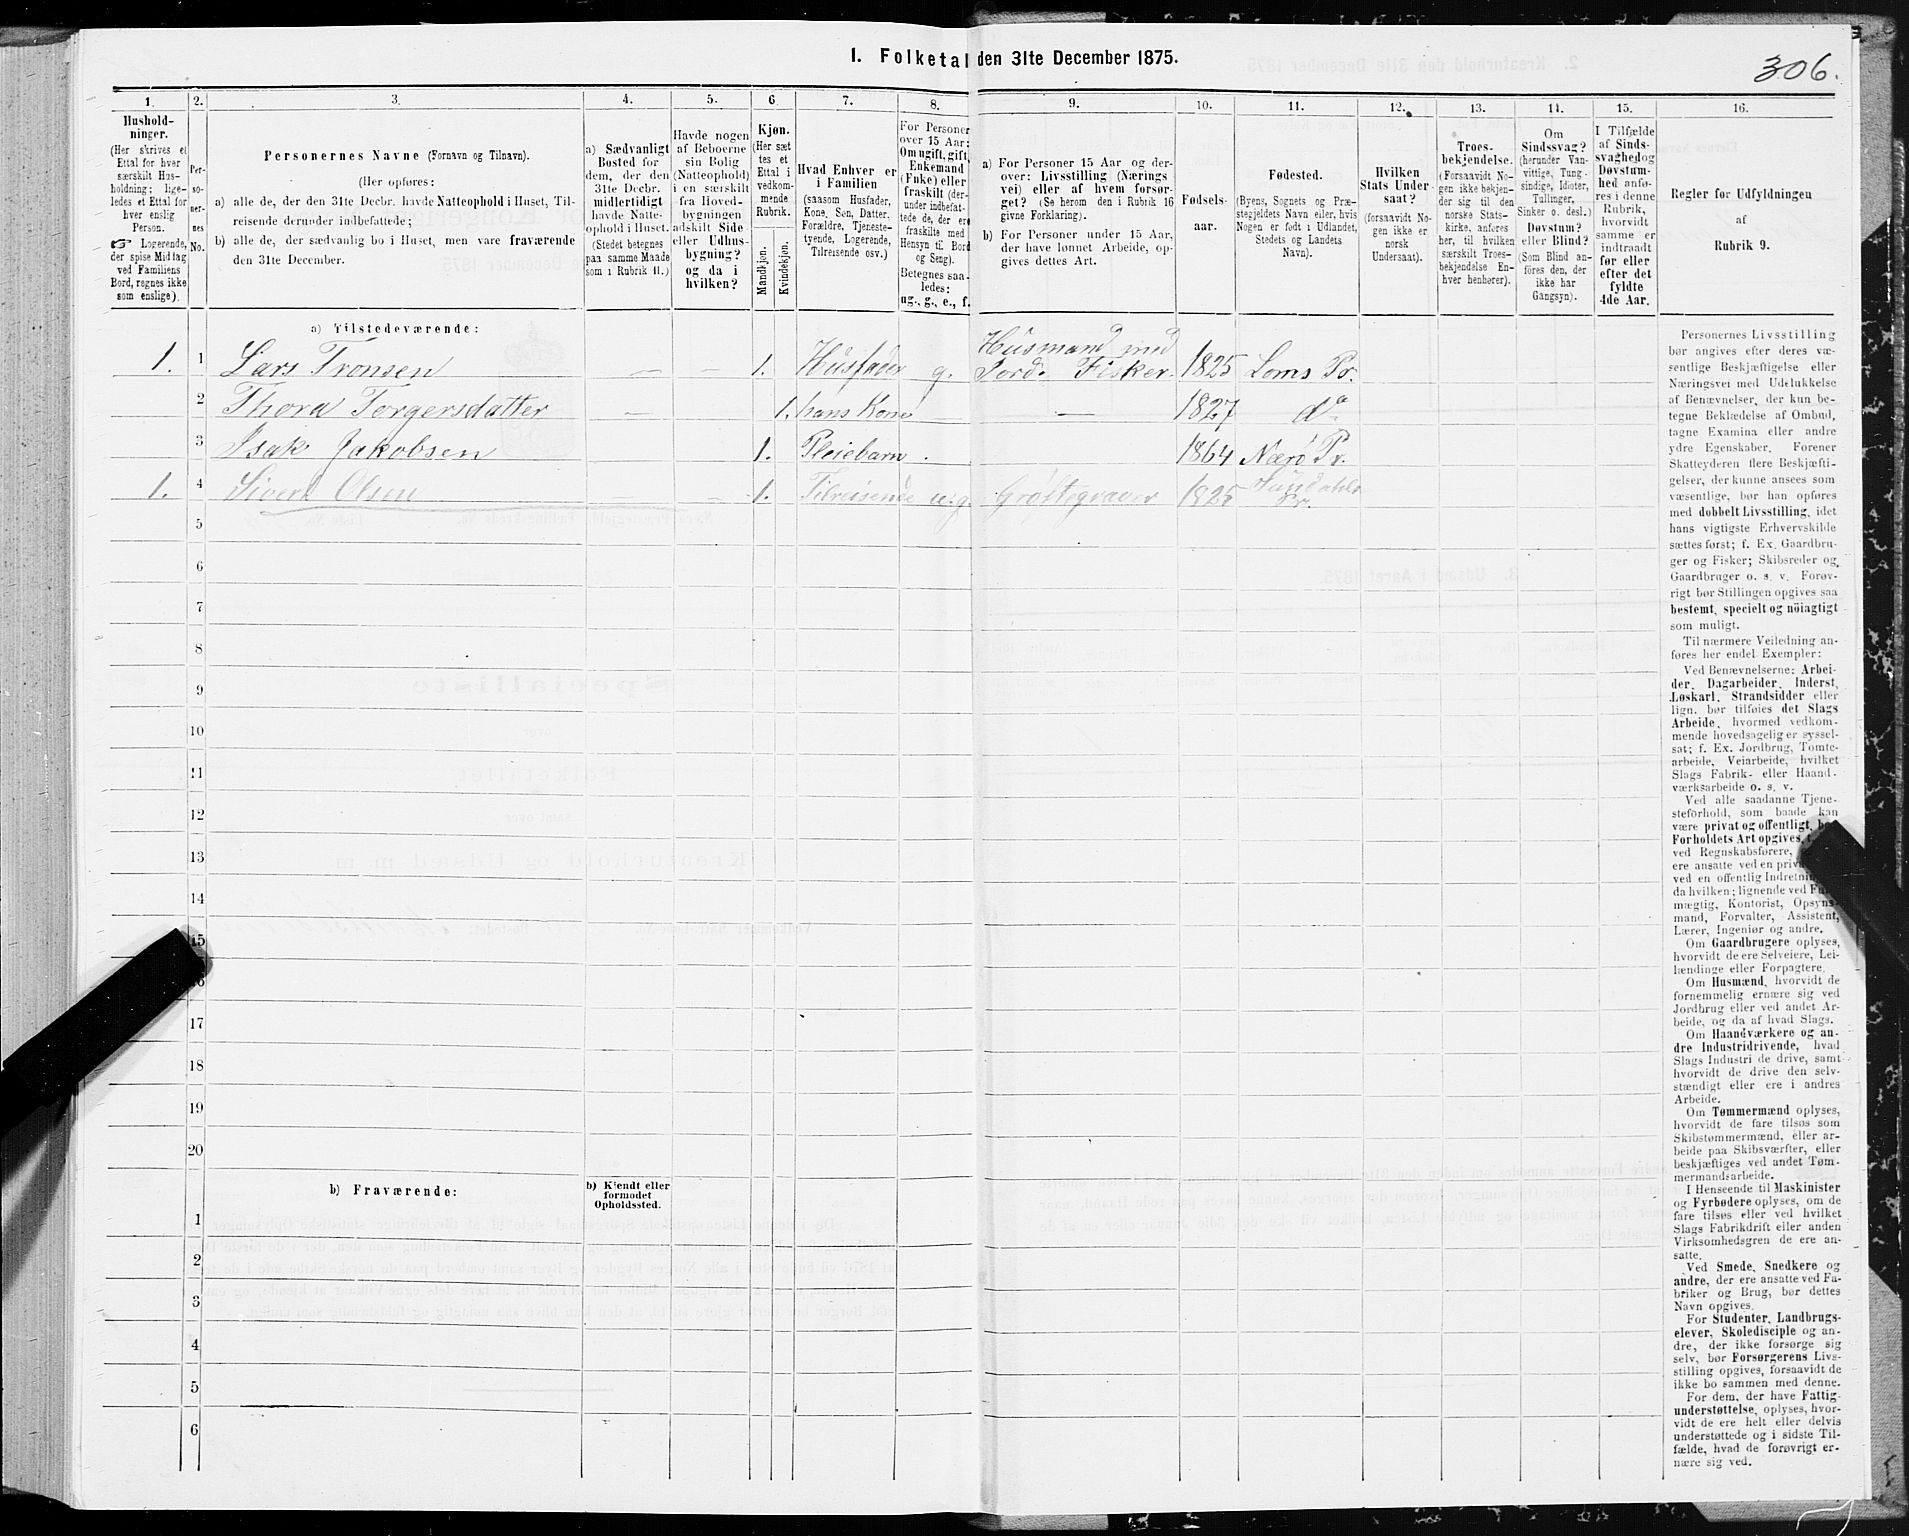 1. Folketal den 31te December 1875.
306.
1.
2.
3.
4.
5.
6.
7.
8.
9.
10.
11.
12.
13.
14.
15.
16.
Hushold-
ninger.
(Her skrives et
Ettal for hver
særskilt Hus-
holdning; lige-
ledes et Ettal for
hver enslig
Person.
☞ Logerende,
der spise Middag
ved Familiens
Bord, regnes ikke
som enslige).
Per-
so-
ner-
nes
No.
Personernes Navne (Fornavn og Tilnavn).
(Her opføres:
a) alle de, der den 31te Decbr. havde Natteophold i Huset, Til-
reisende derunder indbefattede;
b) alle de, der sædvanlig bo i Huset, men vare fraværende
den 31te December.
a) Sædvanligt
Bosted for
dem, der den
31te Decbr.
midlertidigt
havde Natte-
ophold i Huset.
(Stedet betegnes
paa samme Maade
som i Rubrik 11.)
Havde nogen
af Beboerne
sin Bolig
(Natteophold)
i en særskilt
fra Hoved-
bygningen
adskilt Side-
eller Udhus-
bygning?
og da i
hvilken?
Kjøn.
(Her sæt-
tes et
Ettal i
vedkom-
mende
Rubrik.
Mandkjøn.
Kvindekjøn.
Hvad Enhver er
i Familien
(saasom Husfader,
Kone, Søn, Datter,
Forældre, Tjeneste-
tyende, Logerende,
Tilreisende osv.)
For Personer
over 15 Aar:
Om ugift, gift,
Enkemand
(Enke) eller
fraskilt (der-
under indbefat-
tede de, der ere
fraskilte med
Hensyn til Bord
og Seng).
Betegnes saa-
ledes:
ug., g., e., f.
a) For Personer 15 Aar og der-
over: Livsstilling (Nærings-
vei) eller af hvem forsør-
get? (Se herom den i Rubrik 16
givne Forklaring).
b) For Personer under 15 Aar,
der have lønnet Arbeide, op-
gives dettes Art.
Fødsels-
aar.
Fødested.
(Byens, Sognets og Præ-
stegjeldets Navn eller, hvis
Nogen er født i Udlandet,
Stedets og Landets
Navn).
Hvilken
Stats Under-
saat?
(forsaavidt No-
gen ikke er
norsk
Undersaat).
Troes-
bekjendelse.
(Forsaavidt No-
gen ikke bekjen-
der sig til den
norske Stats-
kirke, anføres
her, til hvilken
særskilt Troes-
bekjendelse En-
hver henhører).
Om
Sindssvag?
(herunder Van-
vittige, Tung-
sindige, Idioter,
Tullinger,
Sinker o. desl.)
Døvstum?
eller Blind?
(Som Blind an-
føres den, der
ikke har
Gangsyn).
I Tilfælde
af Sinds-
svaghed og
Døvstum-
hed anfø-
res i denne
Rubrik,
hvorvidt
samme er
indtraadt
før eller
efter det
fyldte
4de Aar.
Regler for Udfyldningen
af
Rubrik 9.
a) Tilstedeværende:
1. 1 Lars Tronsen — — 1. Husfader g. Husmand med Jord. Fisker. 1825 Loms Pr.
2 Thora Torgersdatter — 1. hans Kone — 1827 do
3 Isak Jakobsen 1. Pleiebarn . 1864 Nærø Pr.
1. 4 Sivert Olsen — — 1. Tilreisende u.g. Grøftegraver 1825 Sundahls Pr.
5
6
7
8
9
10
11
12
13
14
15
16
17
18
19
20
b) Fraværende:
b) Kjendt eller
formodet
Opholdssted.
1
2
3
4
5
6
Personernes Livsstilling
bør angives efter deres væ-
sentlige Beskjæftigelse eller
Næringsvei med Udelukkelse
af Benævnelser, der kun be-
tegne Beklædelse af Ombud,
tagne Examina eller andre
ydre Egenskaber. Forener
Skatteyderen flere Beskjæfti-
gelser, der kunne ansees som
væsentlige, bør han opføres
med dobbelt Livsstilling, idet
hans vigtigste Erhvervskilde
sættes først; f. Ex. Gaardbru-
ger og Fisker; Skibsreder og
Gaardbruger o. s. v. Forøv-
rigt bør Stillingen opgives saa
bestemt, specielt og nöiagtigt
som muligt.
Til nærmere Veiledning an-
føres her endel Exempler:
Ved Benævnelserne: Arbei-
der, Dagarbeider, Inderst,
Løskarl, Strandsidder eller
lign. bør tilføies det Slags
Arbeide, hvormed vedkom-
mende hovedsagelig er syssel-
sat; f. Ex. Jordbrug, Tomte-
arbeide, Veiarbeide, hvilket
Slags Fabrik- eller Haand-
værksarbeide o. s. v.
Ved alle saadanne Tjene-
steforhold, som baade kan
være privat og offentligt, bør
Forholdets Art opgives,
ved Regnskabsførere,
ere ansatte ved en
ved en offentlig
da hvilken; lignende ved
mægtig, Kontorist, Opsyns-
mand, Forvalter, Assistent,
Lærer, Ingeniør og andre.
Om Gaardbrugere oplyses,
hvorvidt de ere Selveiere, Lei-
lændinge eller Forpagtere.
Om Husmænd, hvorvidt de
fornemmelig ernære sig ved
Jordbrug eller ved andet Ar-
beide, og da af hvad Slags.
Om Haandværkere og an-
dre Industridrivende, hvad
Slags Industri de drive, samt
hvorvidt de drive den selv-
stændigt eller ere i andres
Arbeide.
Om Tømmermænd oplyses,
hvorvidt de fare tilsøs som
Skibstømmermænd, eller ar-
beide paa Skibsværfter, eller
beskjæftiges ved andet Tøm-
mermandsarbeide.
I Henseende til Maskinister
og Fyrbødere oplyses, om de
fare tilsøs eller ved hvilket
Slags Fabrikdrift eller anden
Virksomhedsgren de ere an-
satte.
Ved Smede, Snedkere og
andre, der ere ansatte ved Fa-
briker og Brug, bør dettes
Navn opgives.
For Studenter, Landbrugs-
elever, Skoledisciple og an-
dre, der ikke forsørge sig
selv, bør Forsørgerens Livs-
stilling opgives, forsaavidt de
ikke bo sammen med denne.
For dem, der have Fattig-
understøttelse, oplyses, hvor-
vidt de ere helt eller delvis
understøttede og i sidste Til-
fælde, hvad de forøvrigt er-
nære sig ved.